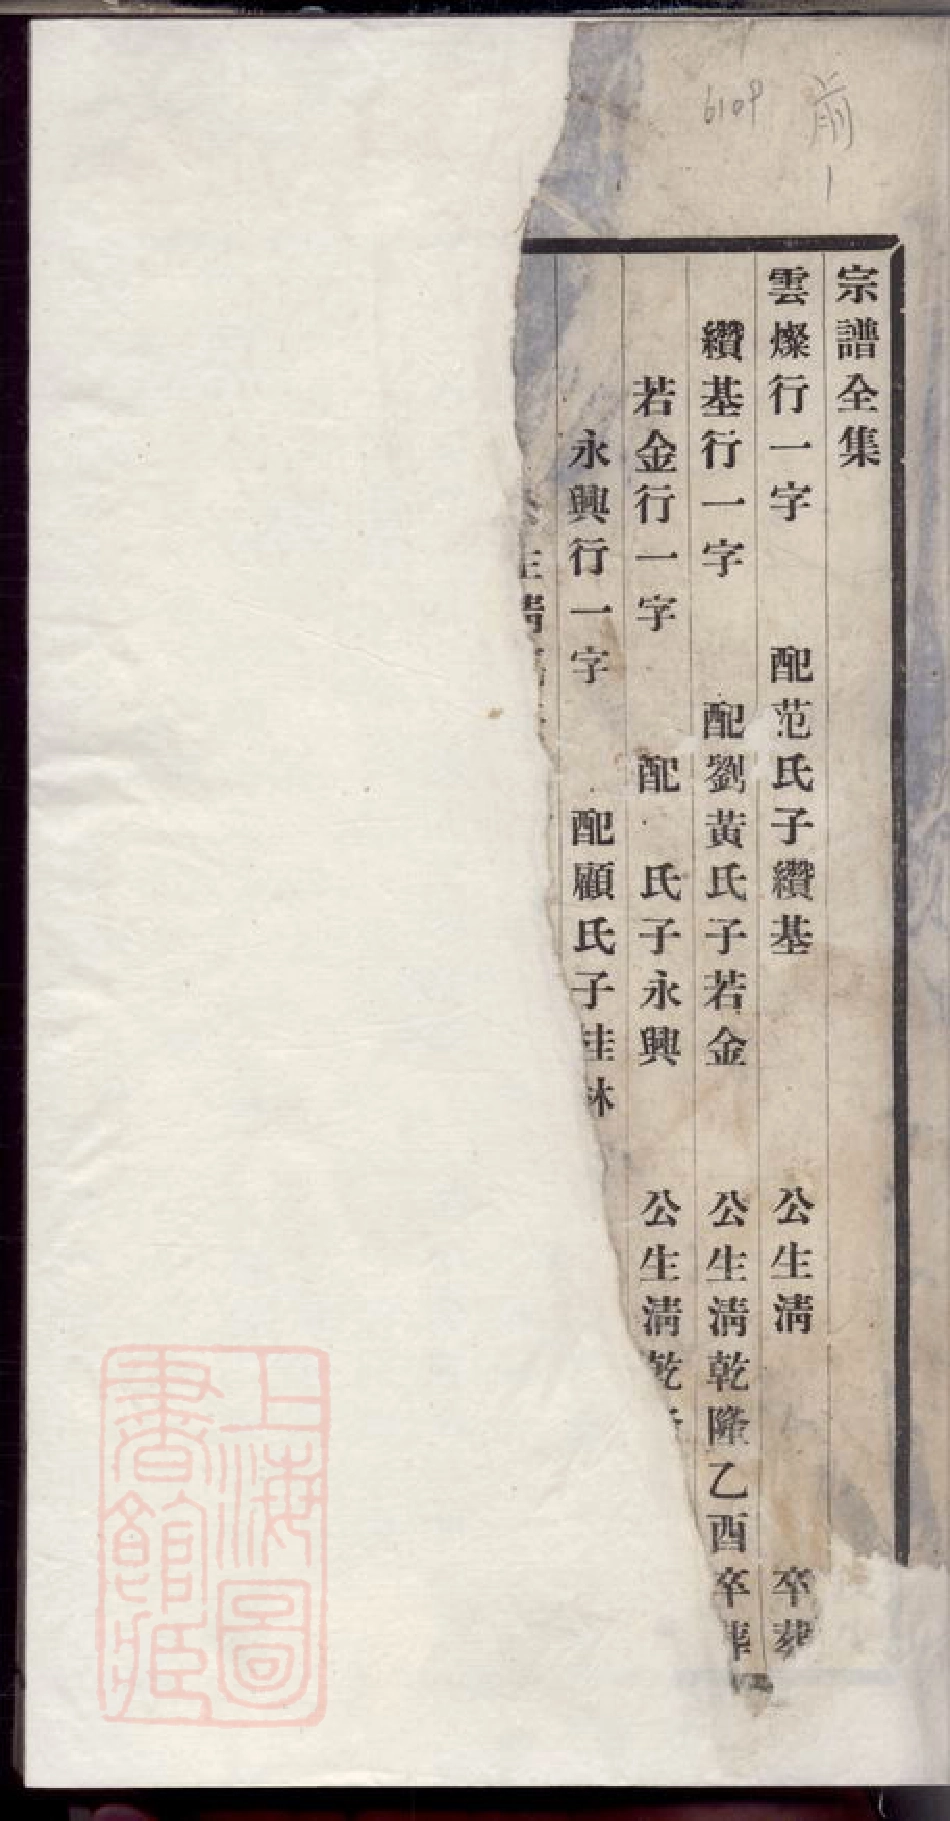 6109
前
1
宗譜全集
雲燦行一字 配范氏子纘基 公生清 卒葬
纘基行一字 配劉黃氏子若金 公生清乾隆乙酉卒葬
若金行一字 配 氏子永興 公生清乾
永興行一字 配顧氏子桂林
生清
上海圖
書館藏